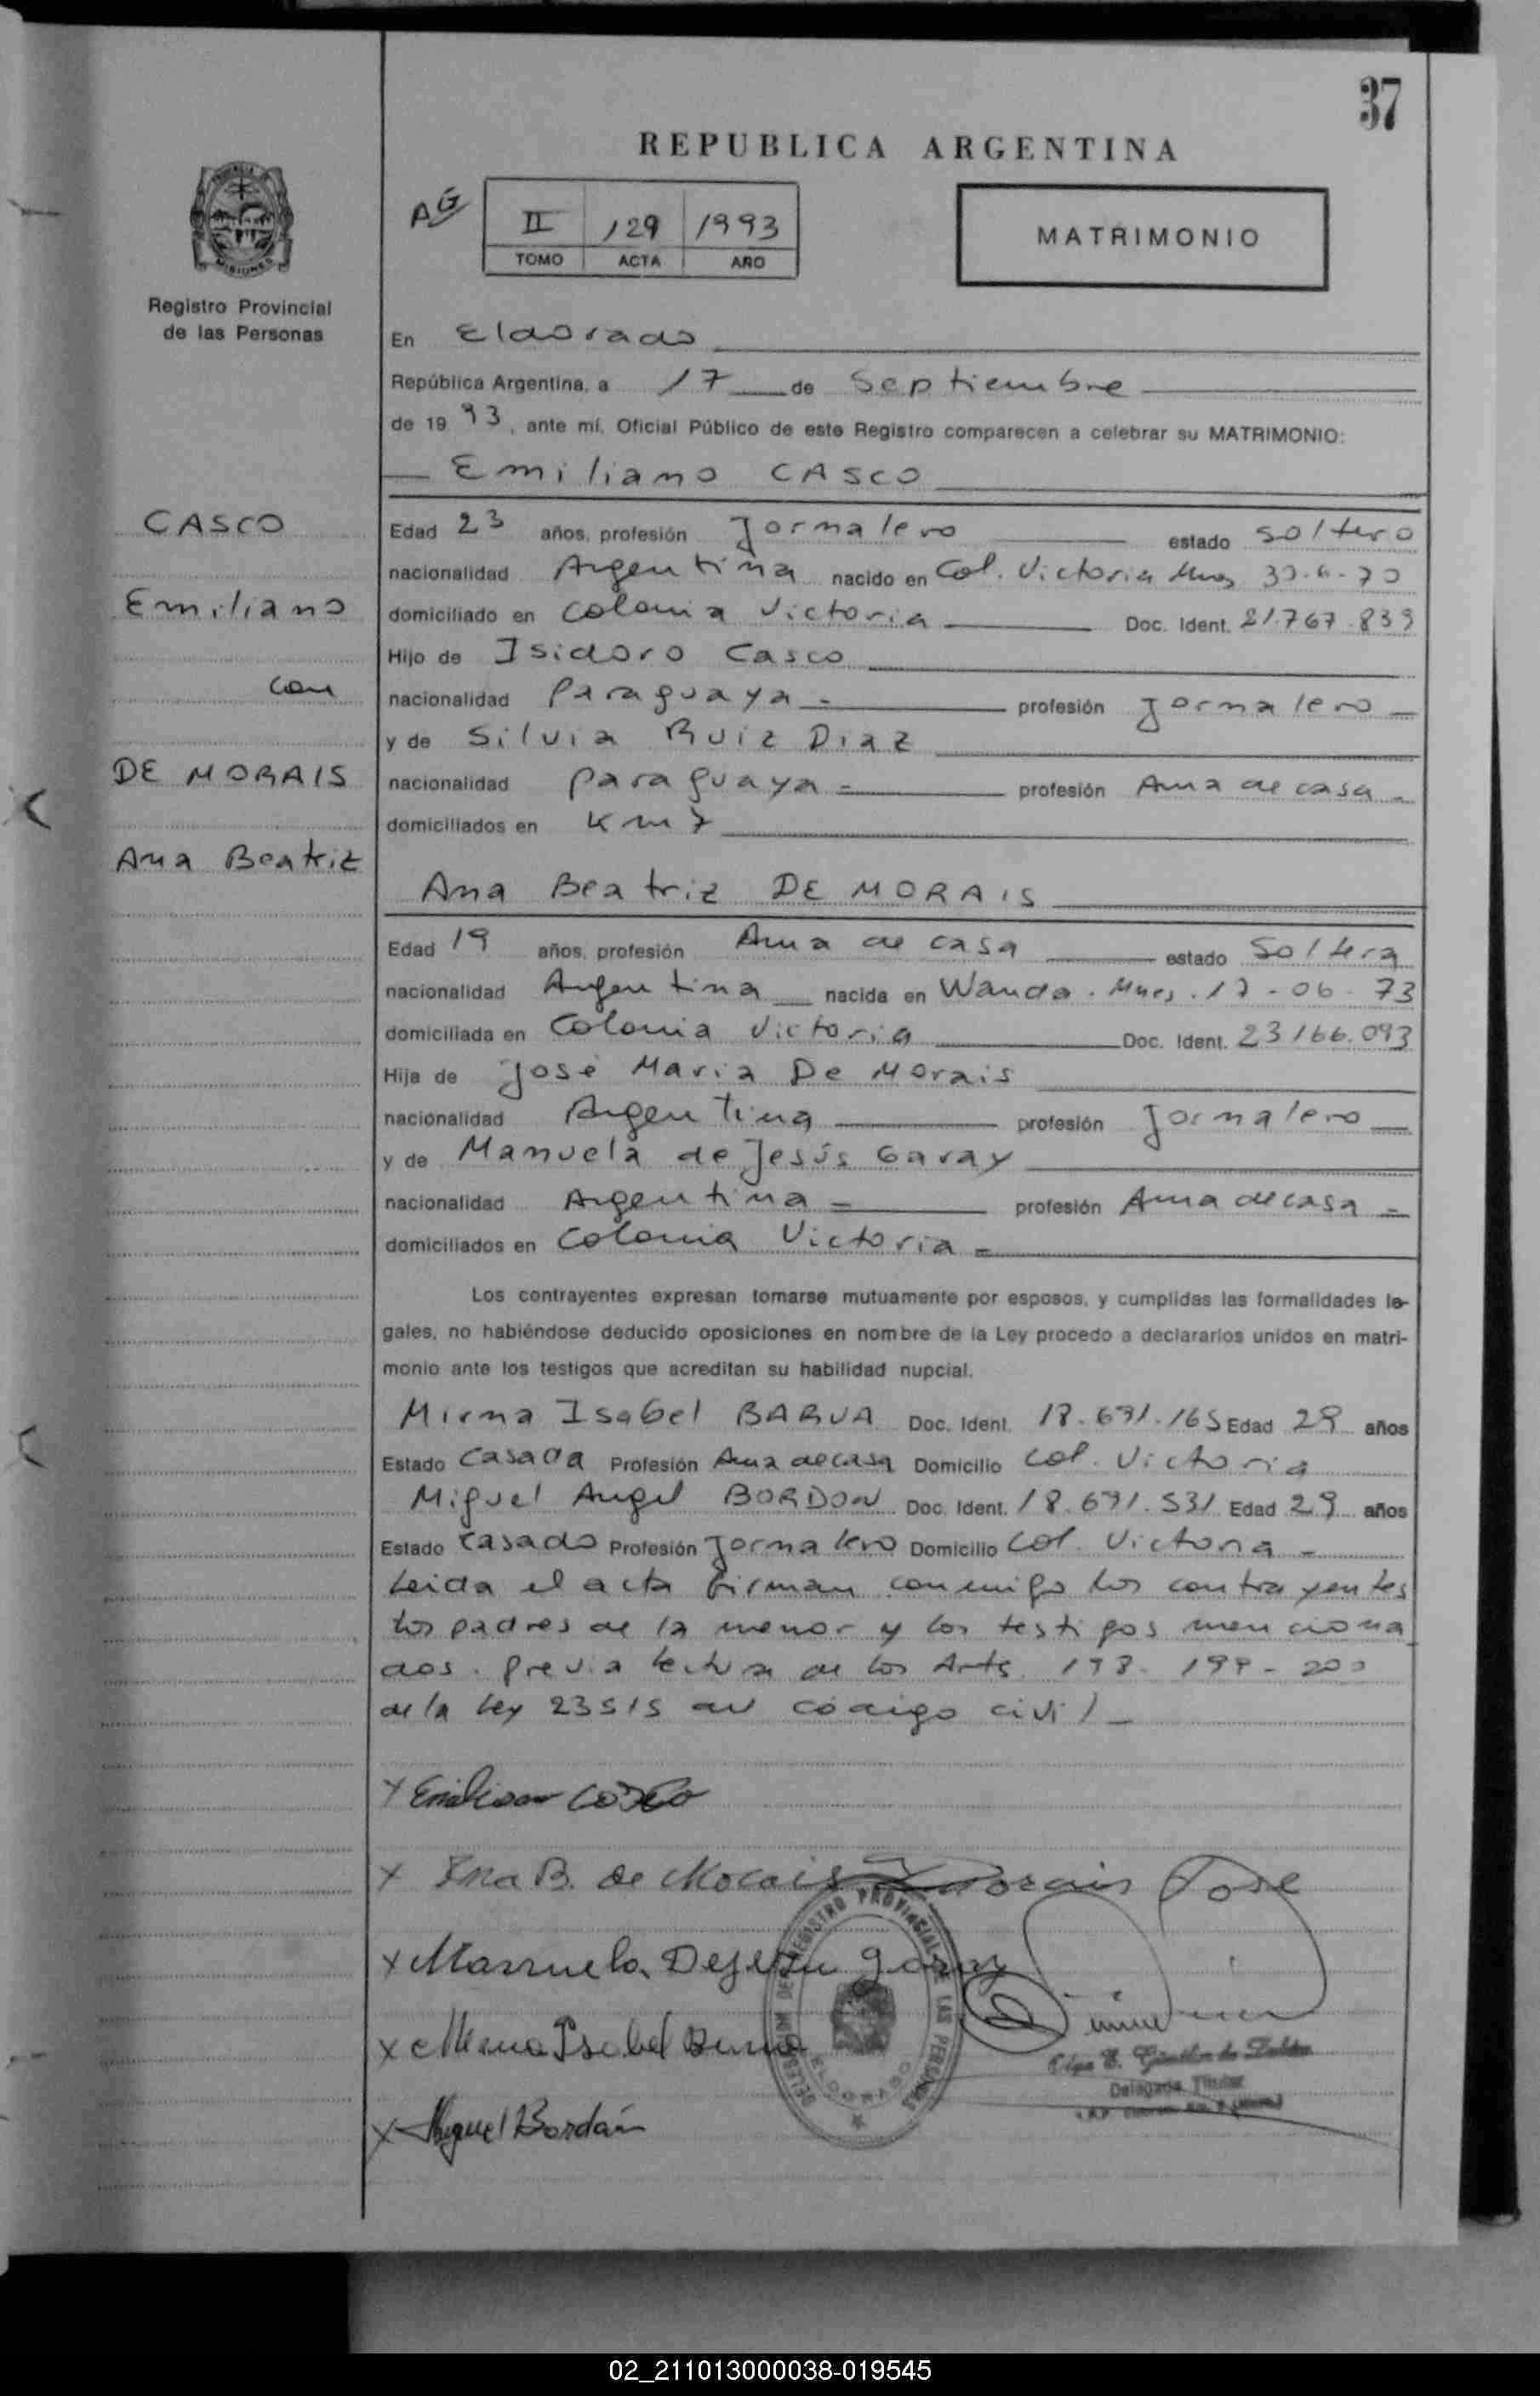 37
REPUBLICA ARGENTINA
AG
II 129 1993
TOMO ACTA AÑO
MATRIMONIO
MISIONES
Registro Provincial
de las Personas
En Eldorado
República Argentina, a 17 de Septiembre
de 1993, ante mí, Oficial Público de este Registro comparecen a celebrar su MATRIMONIO:
Emiliano CASCO
CASCO
Edad 23 años, profesión Jornalero estado soltero
nacionalidad Argentina nacido en Col. Victoria Mnes 30-6-70
Emiliano
domiciliado en Colonia Victoria Doc. Ident. 21.767.839
Hijo de Isidoro Casco
con
nacionalidad Paraguaya - profesión Jornalero -
y de Silvia Ruiz Diaz
DE MORAIS
nacionalidad paraguaya - profesión Ama de casa -
domiciliados en Km 7
Ana Beatriz
Ana Beatriz DE MORAIS
Edad 19 años, profesión Ama de casa estado Soltera
nacionalidad Argentina nacida en Wanda. Mnes. 17-06-73
domiciliada en Colonia Victoria Doc. Ident. 23166.093
Hija de José Maria De Morais
nacionalidad Argentina profesión Jornalero
y de Manuela de Jesús Garay
nacionalidad Argentina = profesión Ama de casa =
domiciliados en Colonia Victoria =
Los contrayentes expresan tomarse mutuamente por esposos, y cumplidas las formalidades le-
gales, no habiéndose deducido oposiciones en nombre de la Ley procedo a declararlos unidos en matri-
monio ante los testigos que acreditan su habilidad nupcial.
Mirna Isabel BARUA Doc. Ident. 18.691.165 Edad 29 años
Estado Casada Profesión Ama de casa Domicilio Col. Victoria
Miguel Angel BORDON Doc. Ident. 18.691.531 Edad 29 años
Estado Casado Profesión Jornalero Domicilio Col. Victoria -
Leida el acta firman conmigo los contrayentes
los padres de la menor y los testigos menciona
dos. previa lectura de los Arts. 198-199-200
de la ley 23515 del código civil -
x Emiliano Casco
x Ana B. de Morais Morais Jose
x Manuela Dejesu garay
x Mirna Isabel Barua
DELEGACION DEL REGISTRO PROVINCIAL DE LAS PERSONAS
ELDORADO
Delegada Titular
x Miguel Bordón
02_211013000038-019545